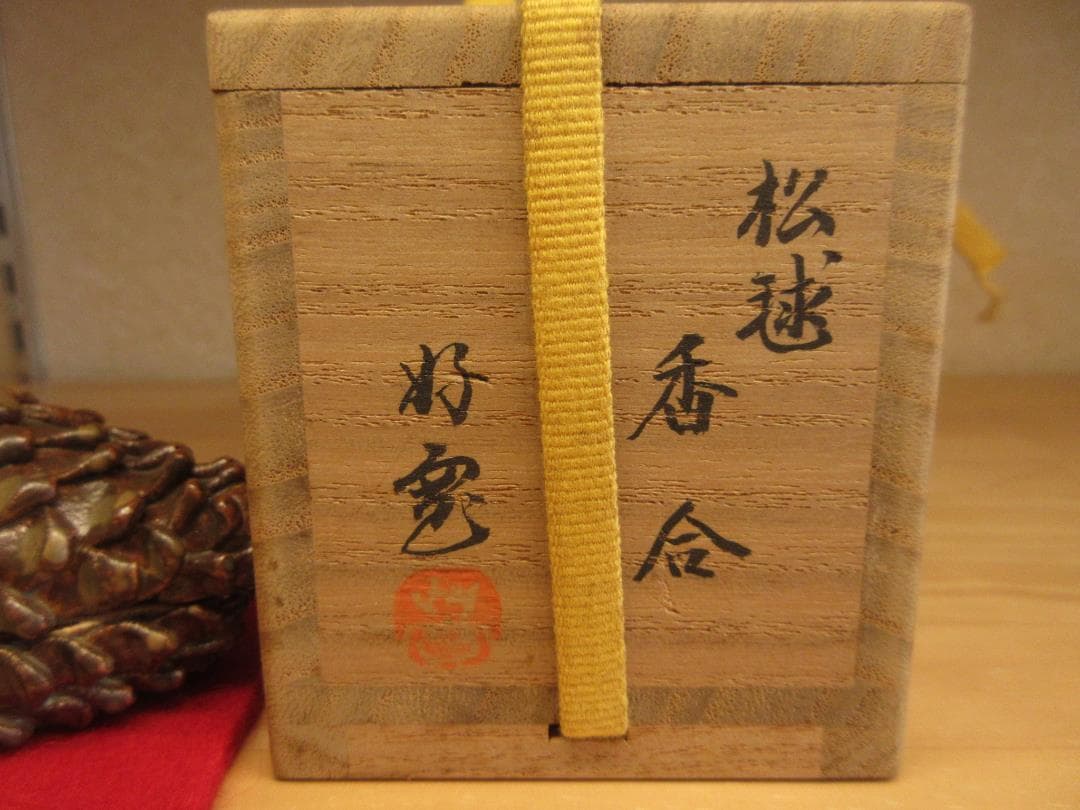 松毬
香合
好